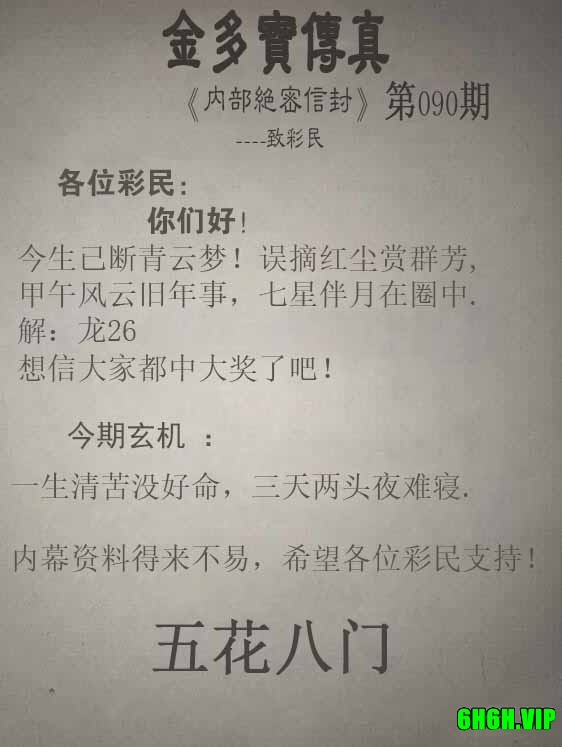 金多寶傳真
《内部絶密信封》第090期
----致彩民
各位彩民:
你们好!
今生已断青云梦！误摘红尘赏群芳,
甲午风云旧年事，七星伴月在圈中.
解：龙26
想信大家都中大奖了吧！
今期玄机 ：
一生清苦没好命，三天两头夜难寝.
内幕资料得来不易，希望各位彩民支持！
五花八门
6H6H.VIP